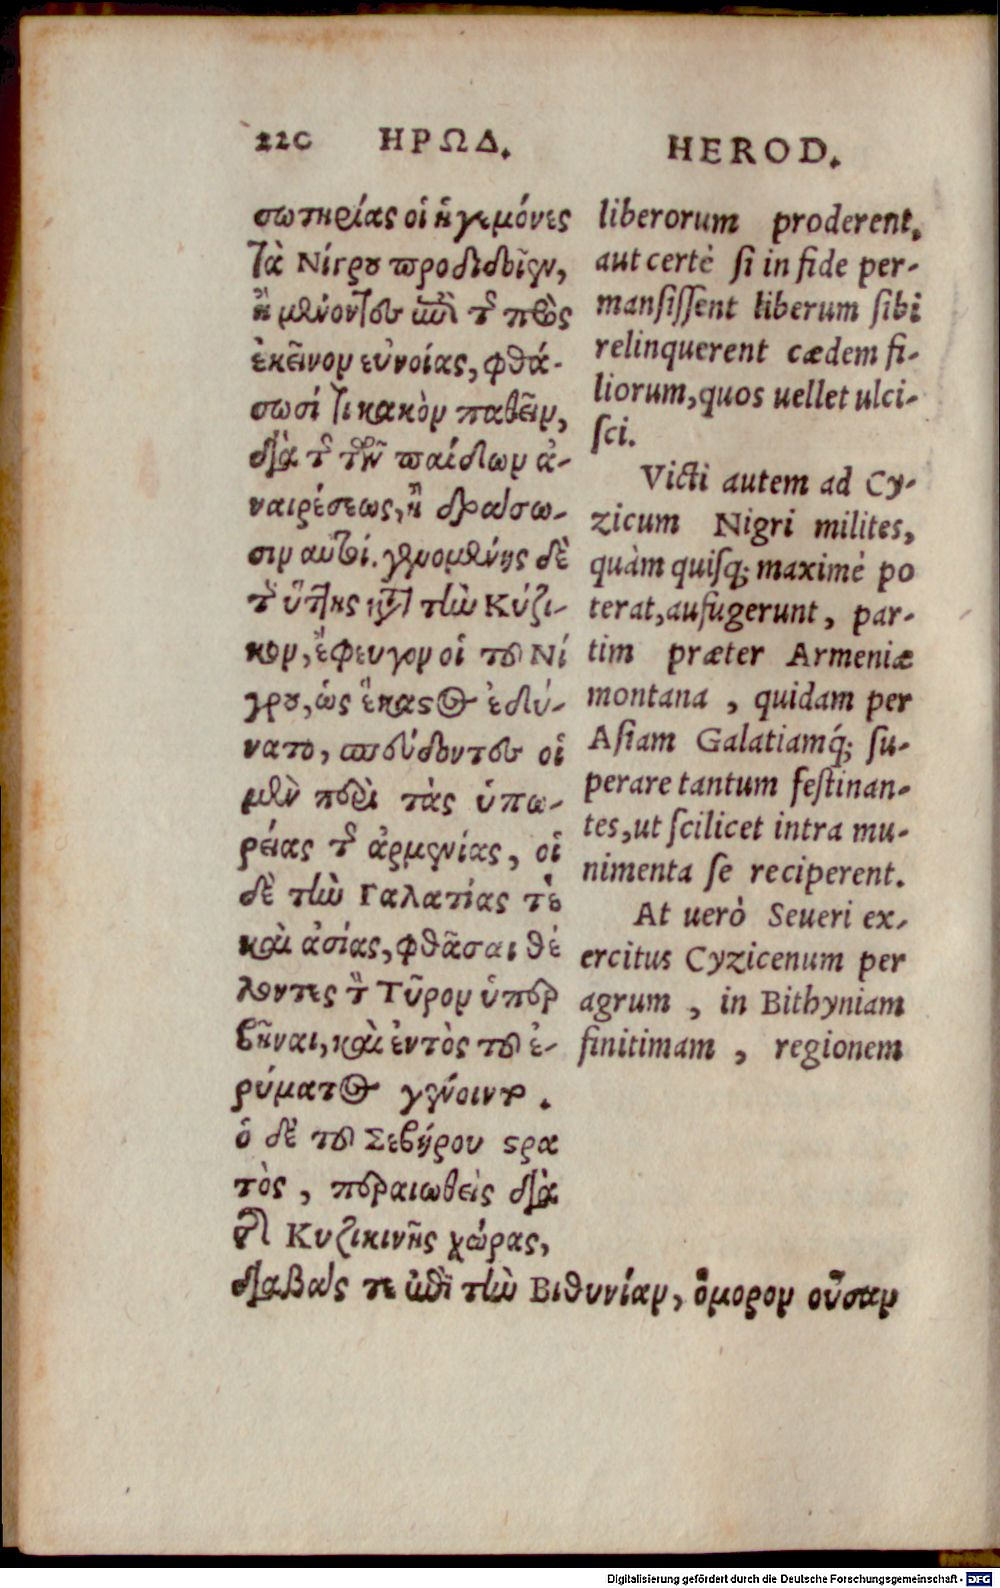 220 ΗΡΩΔ.
σωτηρίας οἱ ἡγεμόνες
τὰ Νίγρου προδιδοῖεν,
ἢ μένοντες ἐπὶ τῆς πρὸς
ἐκεῖνον εὐνοίας, φθά-
σωσί τι κακὸν παθεῖν,
διὰ τῆς τῶν παίδων ἀ-
ναιρέσεως, ἢ δράσω-
σιν αὐτοί. γενομένης δὲ
τῆς ἥττης κατὰ τὴν Κύζι-
κον, ἔφευγον οἱ τοῦ Νί
γρου, ὡς ἕκαστος ἐδύ-
νατο, σπεύδοντες οἱ
μὲν περὶ τὰς ὑπω-
ρείας τῆς ἀρμενίας, οἱ
δὲ τὴν Γαλατίας τε
καὶ ἀσίας, φθᾶσαι θέ
λοντες τὸν Τῦρον ὑπερ
βῆναι, καὶ ἐντὸς τοῦ ἐ-
ρύματος γένοιντο.
ὁ δὲ τοῦ Σεβήρου στρα
τὸς, περαιωθεὶς διὰ
τῆς Κυζικινῆς χώρας,
διαβὰς τε ἐπὶ τὴν Βιθυνίαν, ὅμορον οὖσαν
HEROD.
liberorum proderent,
aut certè si in fide per-
mansissent liberum sibi
relinquerent cædem fi-
liorum, quos uellet ulci-
sci.
Victi autem ad Cy-
zicum Nigri milites,
quàm quisq; maximè po
terat, aufugerunt, par-
tim præter Armeniæ
montana, quidam per
Asiam Galatiamq́; su-
perare tantum festinan-
tes, ut scilicet intra mu-
nimenta se reciperent.
At uerò Seueri ex-
ercitus Cyzicenum per
agrum, in Bithyniam
finitimam, regionem
Digitalisierung gefördert durch die Deutsche Forschungsgemeinschaft - DFG